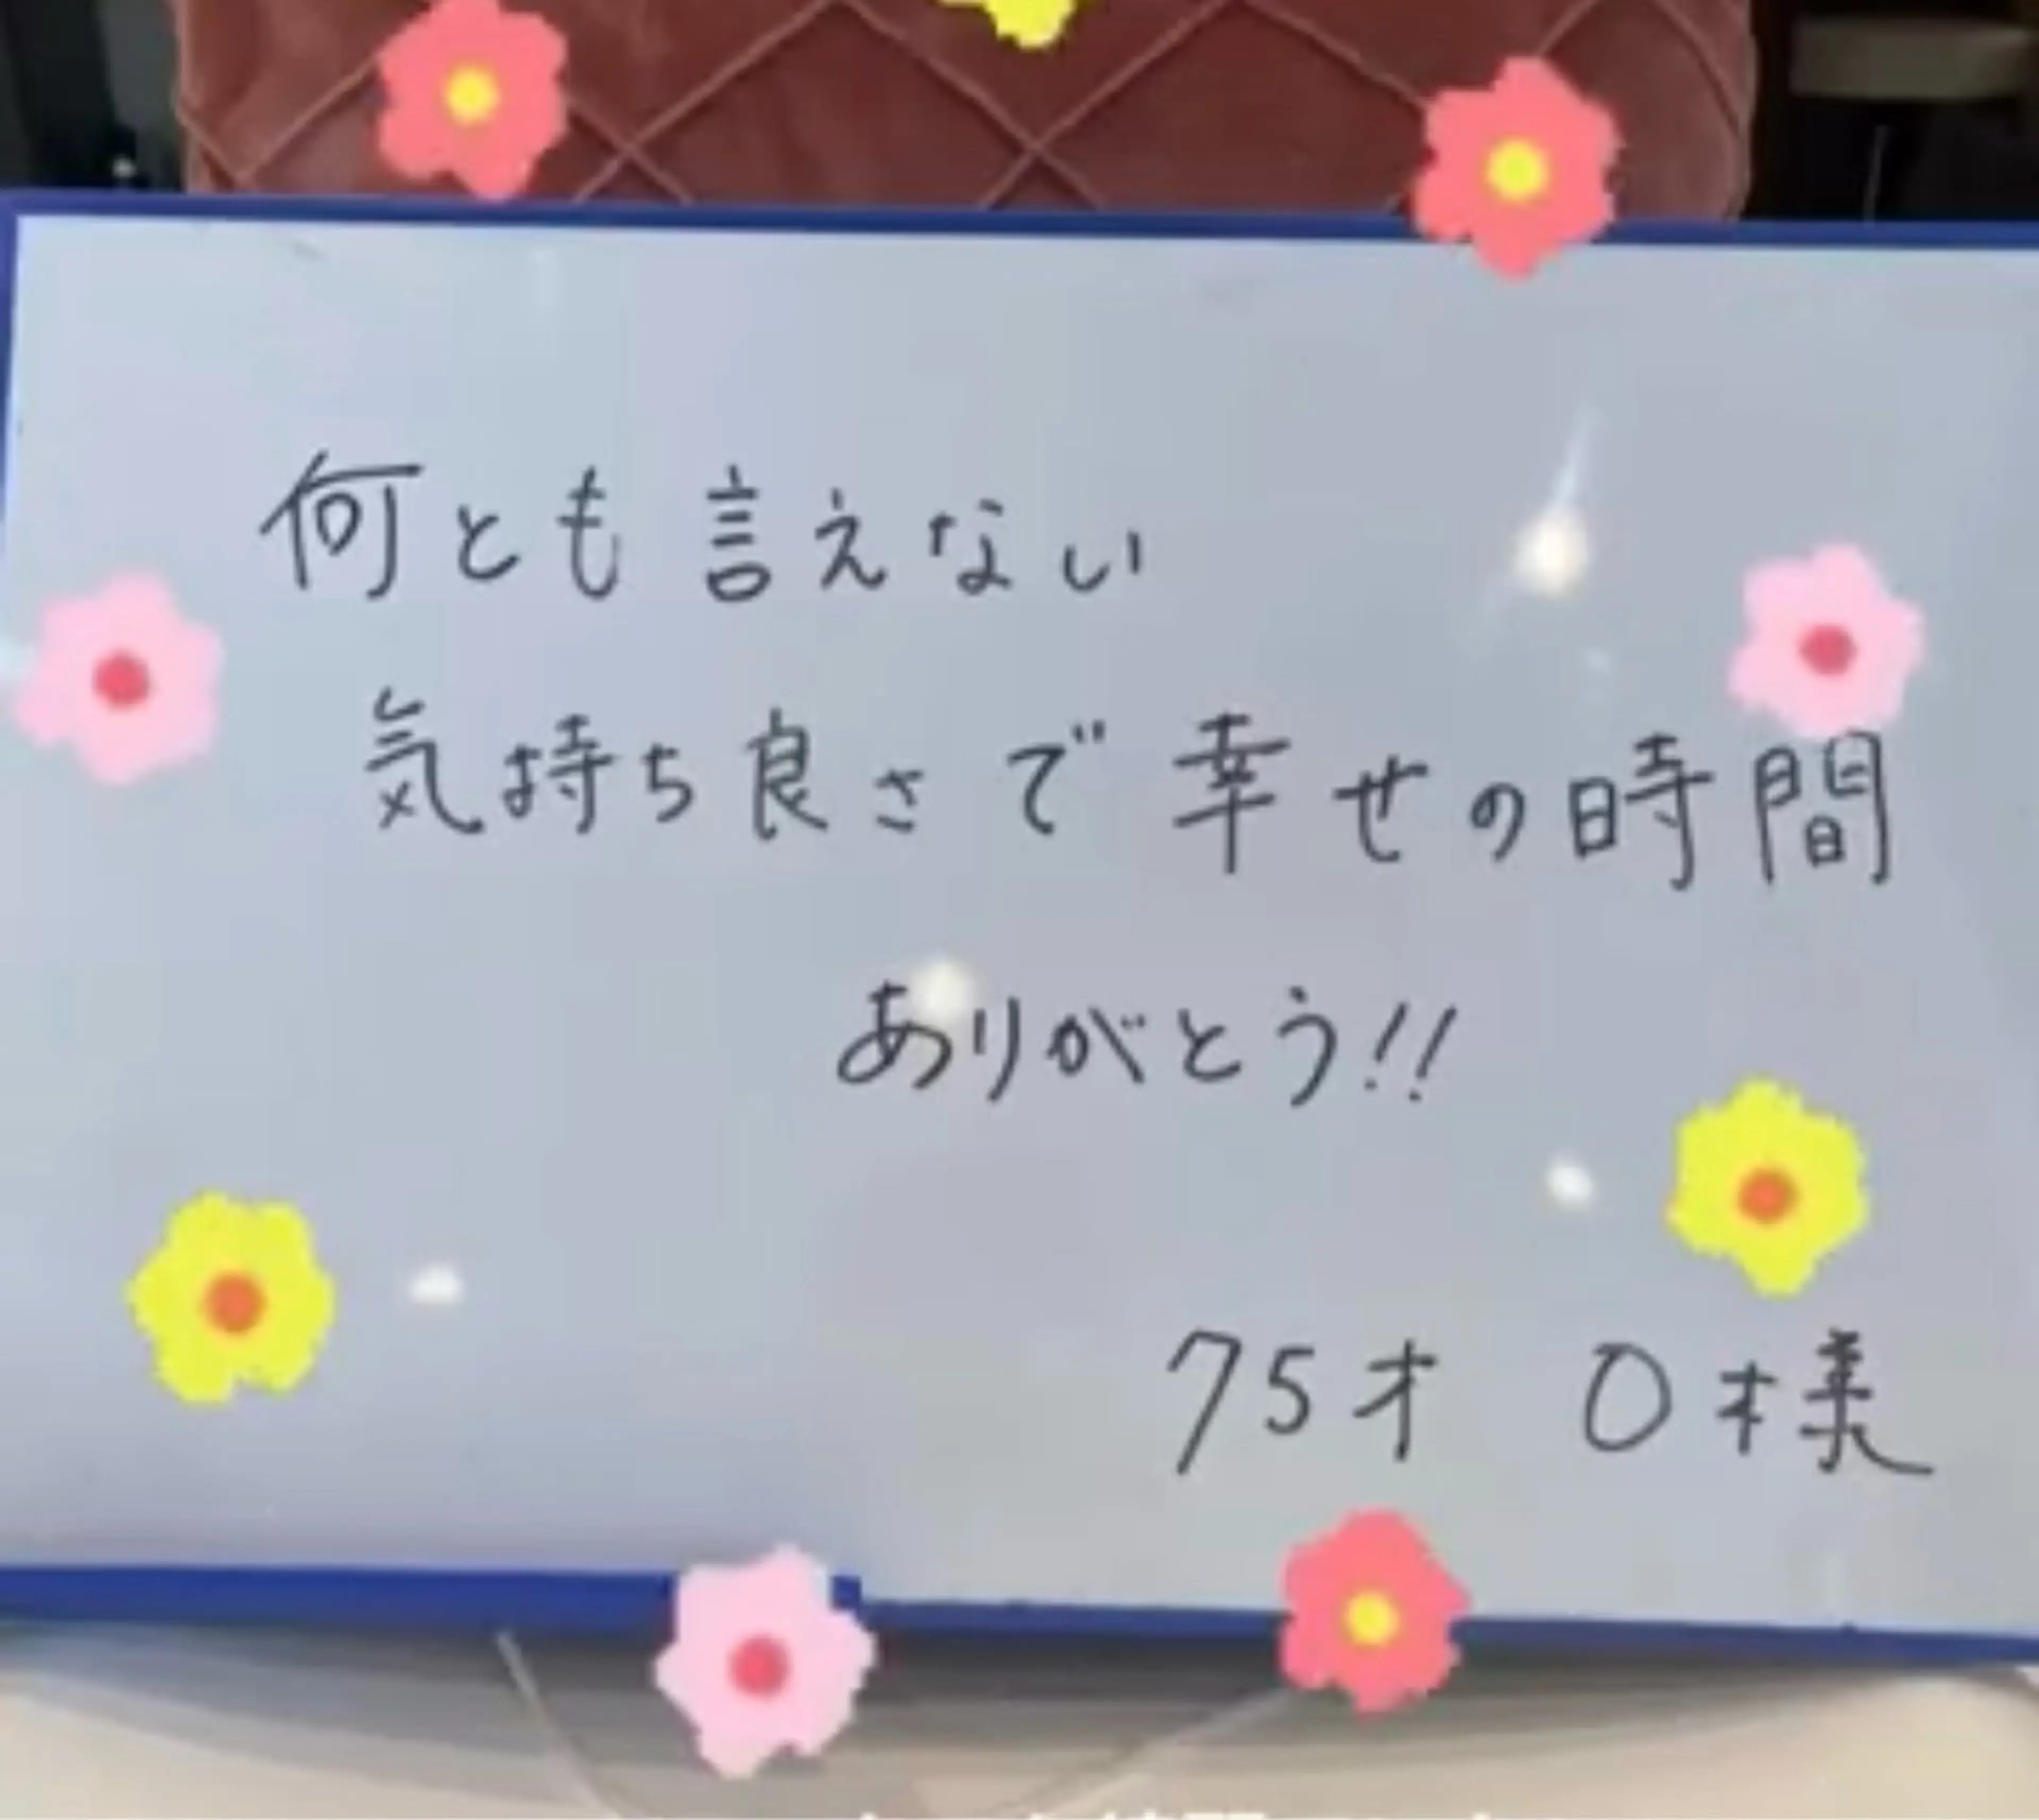 何とも言えない
気持ち良さで幸せの時間
ありがとう!!
75才 O様